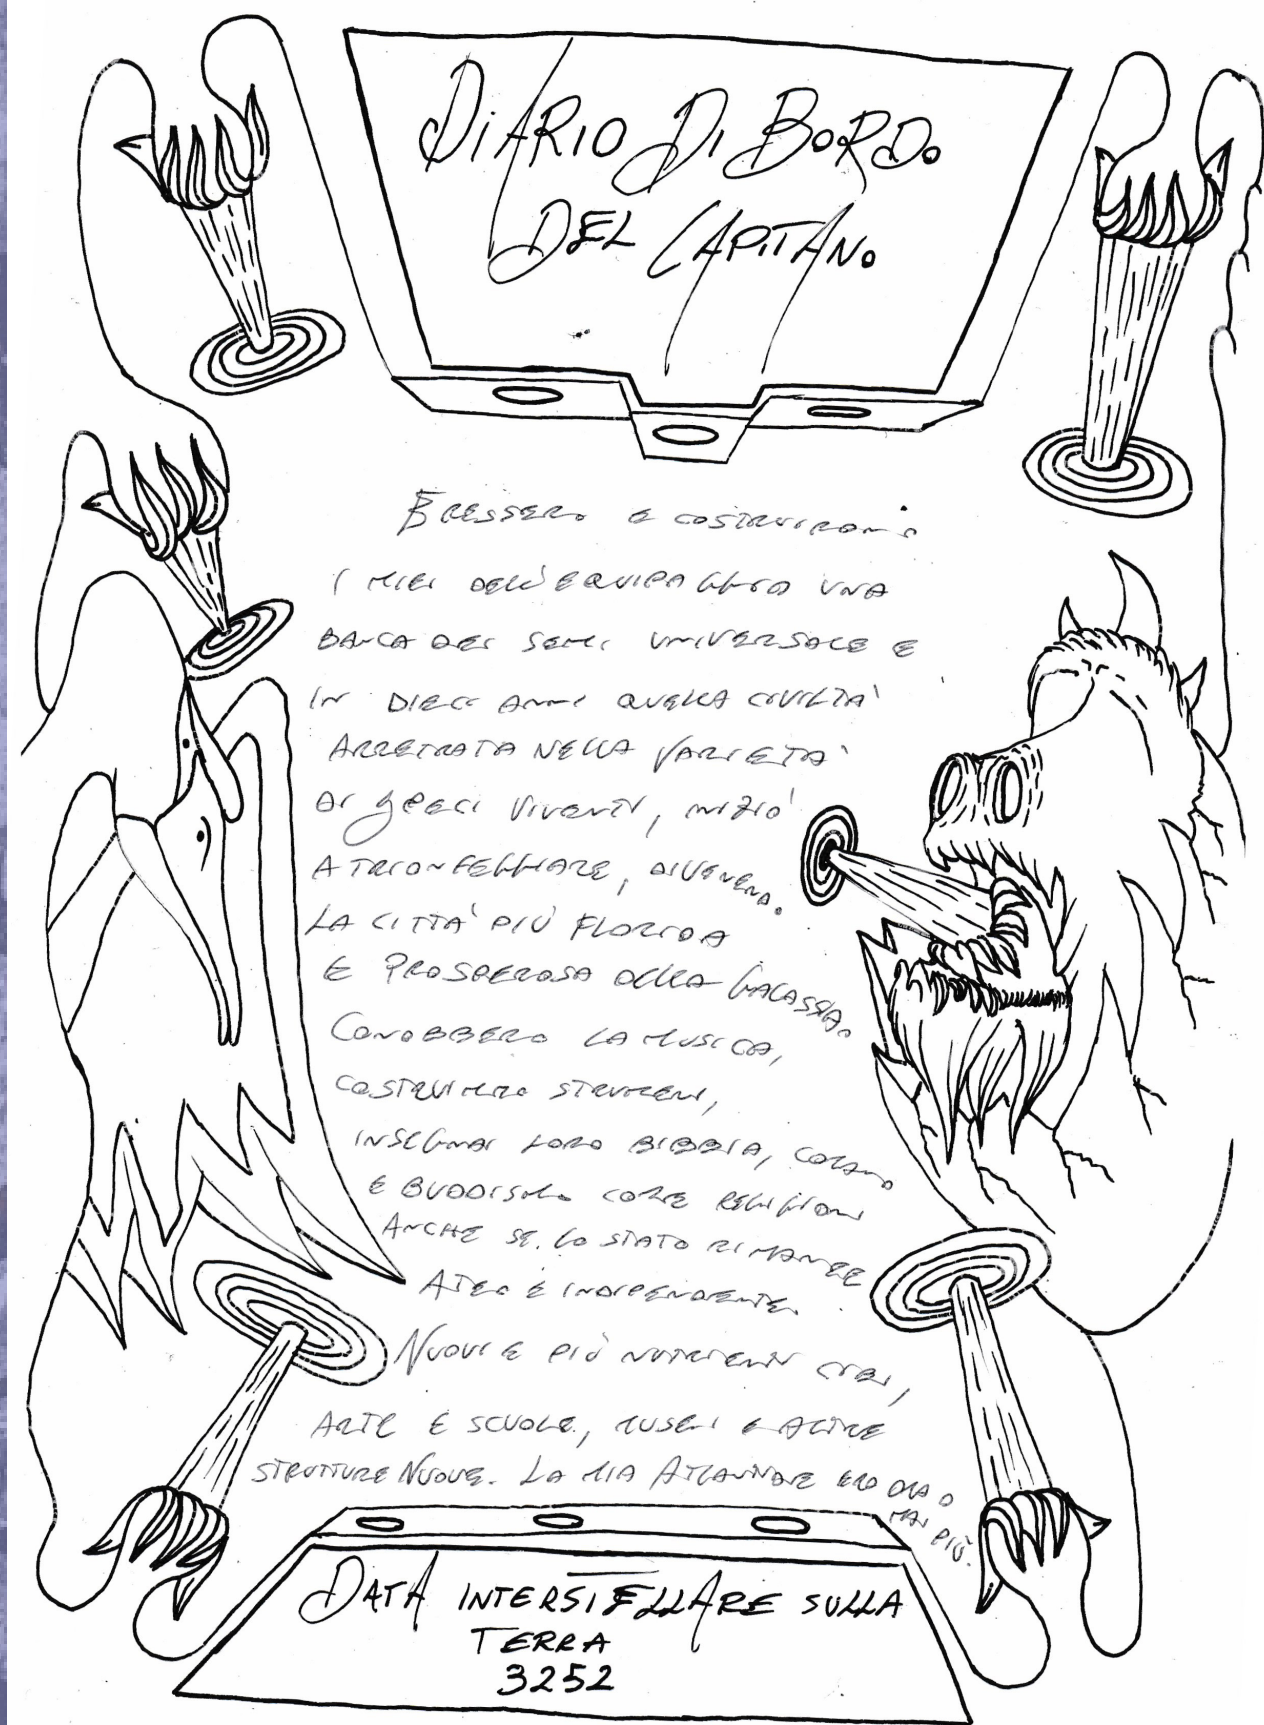 DIARIO DI BORDO
DEL CAPITANO
E COSTRUIRONO
I MIEI DELL'EQUIPAGGIO UNA
BANCA DEI SEMI UNIVERSALE E
IN DIECI ANNI QUELLA CIVILTA'
ARRETRATA NELLA VARIETA'
DI SPECI VIVENTI, INIZIO'
A TRIONFEGGIARE, DIVENENDO
LA CITTA' PIÙ FLORIDA
E PROSPEROSA DELLA GALASSIA.
CONOBBERO LA MUSICA,
COSTRUIRO STRUMENTI,
INSEGNAI LORO BIBBIA, CORANO
E BUDDISMO COME RELIGIONI
ANCHE SE LO STATO RIMANEE
ATEO E INDIPENDENTE.
NUOVI E PIÙ NUTRIENTI CIBI,
ARTE E SCUOLE, MUSEI E ALTRE
STRUTTURE NUOVE. LA MIA ERO ORA O
MAI PIÙ.
DATA INTERSTELLARE SULLA
TERRA
3252